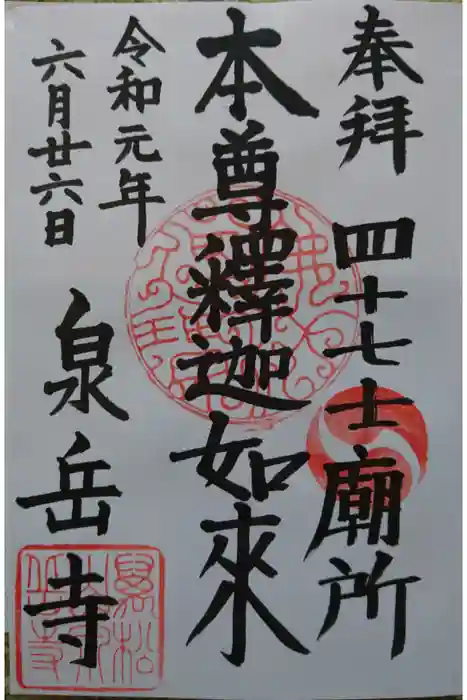 奉拝 四十七士廟所
本尊釋迦如來
令和元年
六月廿六日
泉岳寺